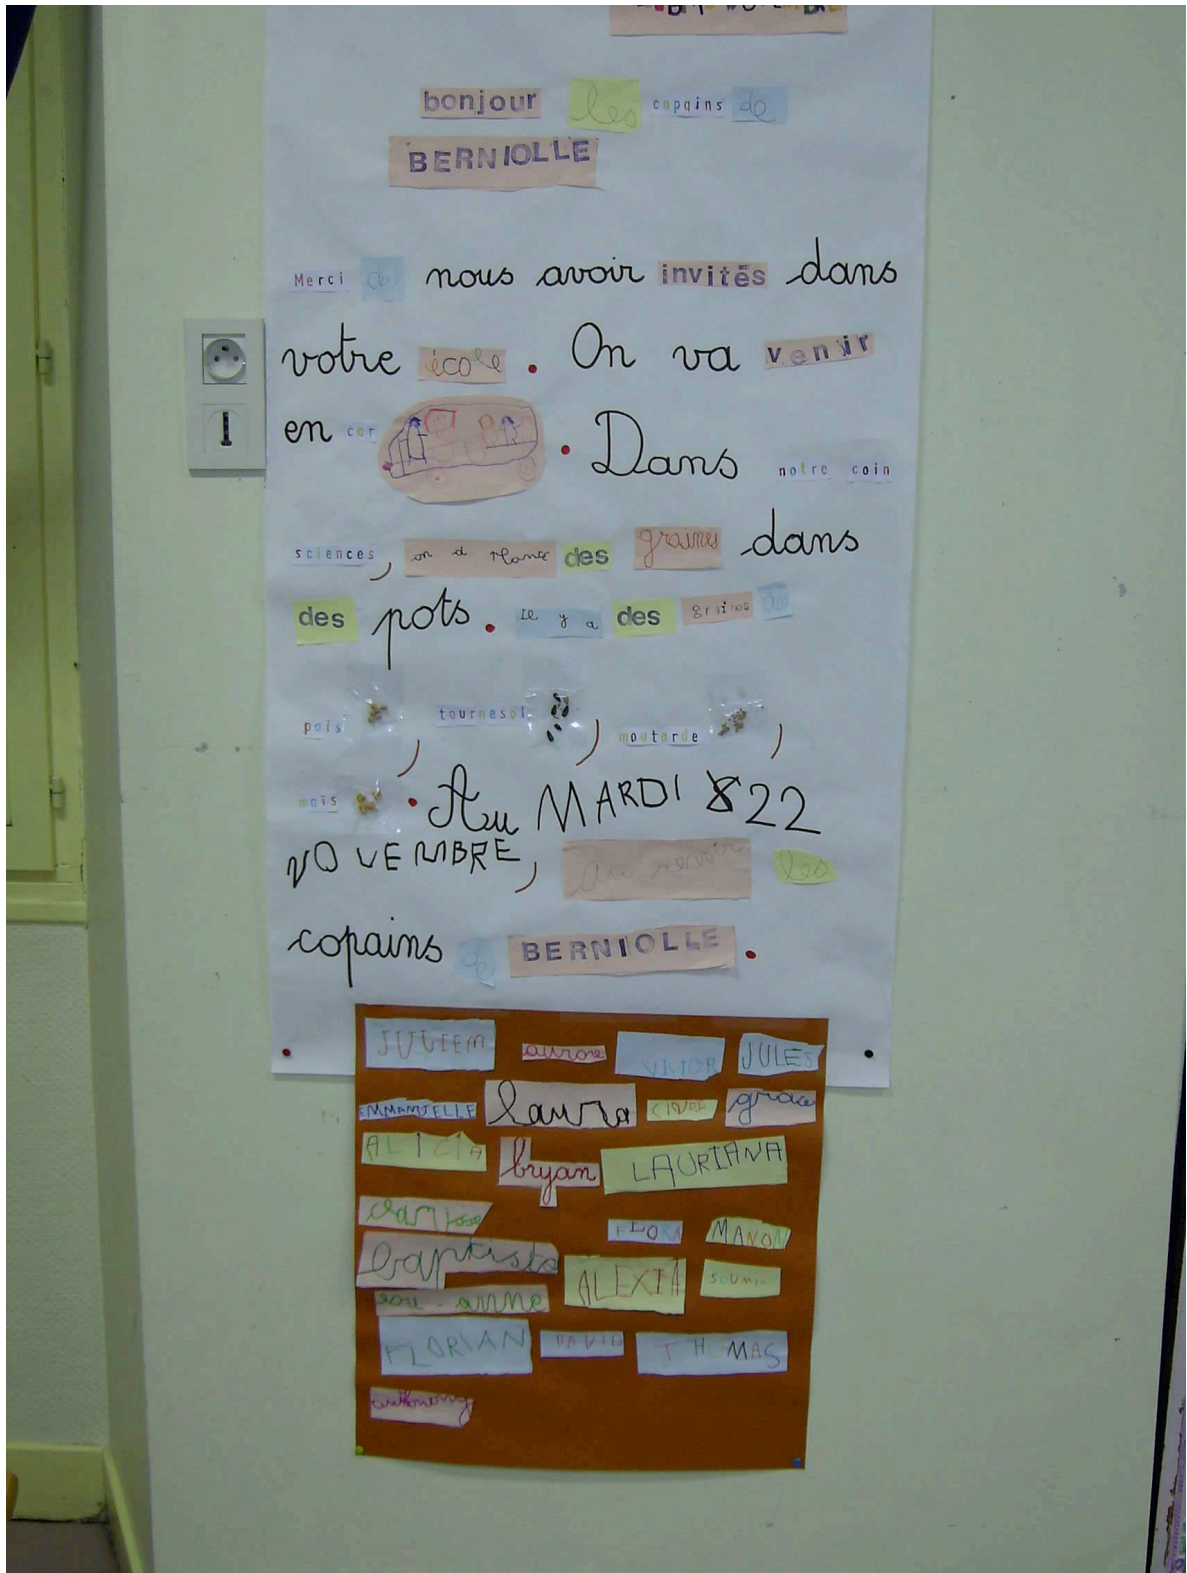 bonjour les copains de
BERNIOLLE
Merci de nous avoir invités dans
votre école. On va venir
en car . Dans notre coin
sciences, on a planté des graines dans
des pots. Il y a des graines de
pois , tournesol , moutarde ,
maïs . Au MARDI 22
NOVEMBRE, au revoir les
copains de BERNIOLLE.
JULIEN aurore VICTOR JULES
EMMANUELLE laura grace
ALICIA bryan LAURIANA
clarisse FLORA MANON
baptiste ALEXIA
lou-anne
FLORIAN DAVID THOMAS
anthony